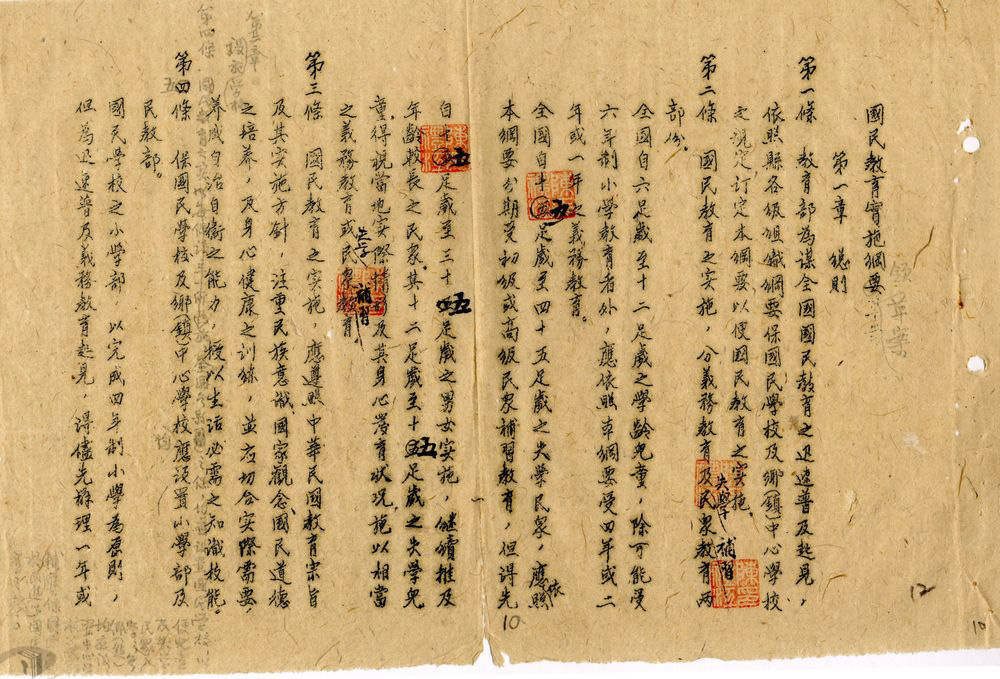 國民教育實施綱要
第一章 總則
第一條 教育部為謀全國國民教育之迅速普及起見，
依照縣各級組織綱要保國民學校及鄉(鎮)中心學校
之規定訂定本綱要，以便國民教育之實施。
第二條 國民教育之實施，分義務教育及失學民眾補習教育兩
部份。
全國自六足歲至十二足歲之學齡兒童，除可能受
六年制小學教育者外，應依照本綱要受四年或二
年或一年之義務教育。
全國自十五足歲至四十五足歲之失學民眾，應依照
本綱要分期受初級或高級民眾補習教育，但得先
自十五足歲至三十五足歲之男女實施，繼續推及
年齡較長之民眾。其十二足歲至十五足歲之失學兒
童，得視當地實際情形及其身心發育狀況，施以相當
之義務教育或失學民眾補習教育。
第三條 國民教育之實施，應遵照中華民國教育宗旨
及其實施方針，注重民族意識、國家觀念、國民道德
之培養，及身心健康之訓練，並應切合實際需要，
養成自治自衛之能力，授以生活必需之知識技能。
第四條 保國民學校及鄉(鎮)中心學校應設置小學部及
民教部。
國民學校之小學部，以完成四年制小學為原則，
但為迅速普及義務教育起見，得儘先辦理一年或
10
12
10